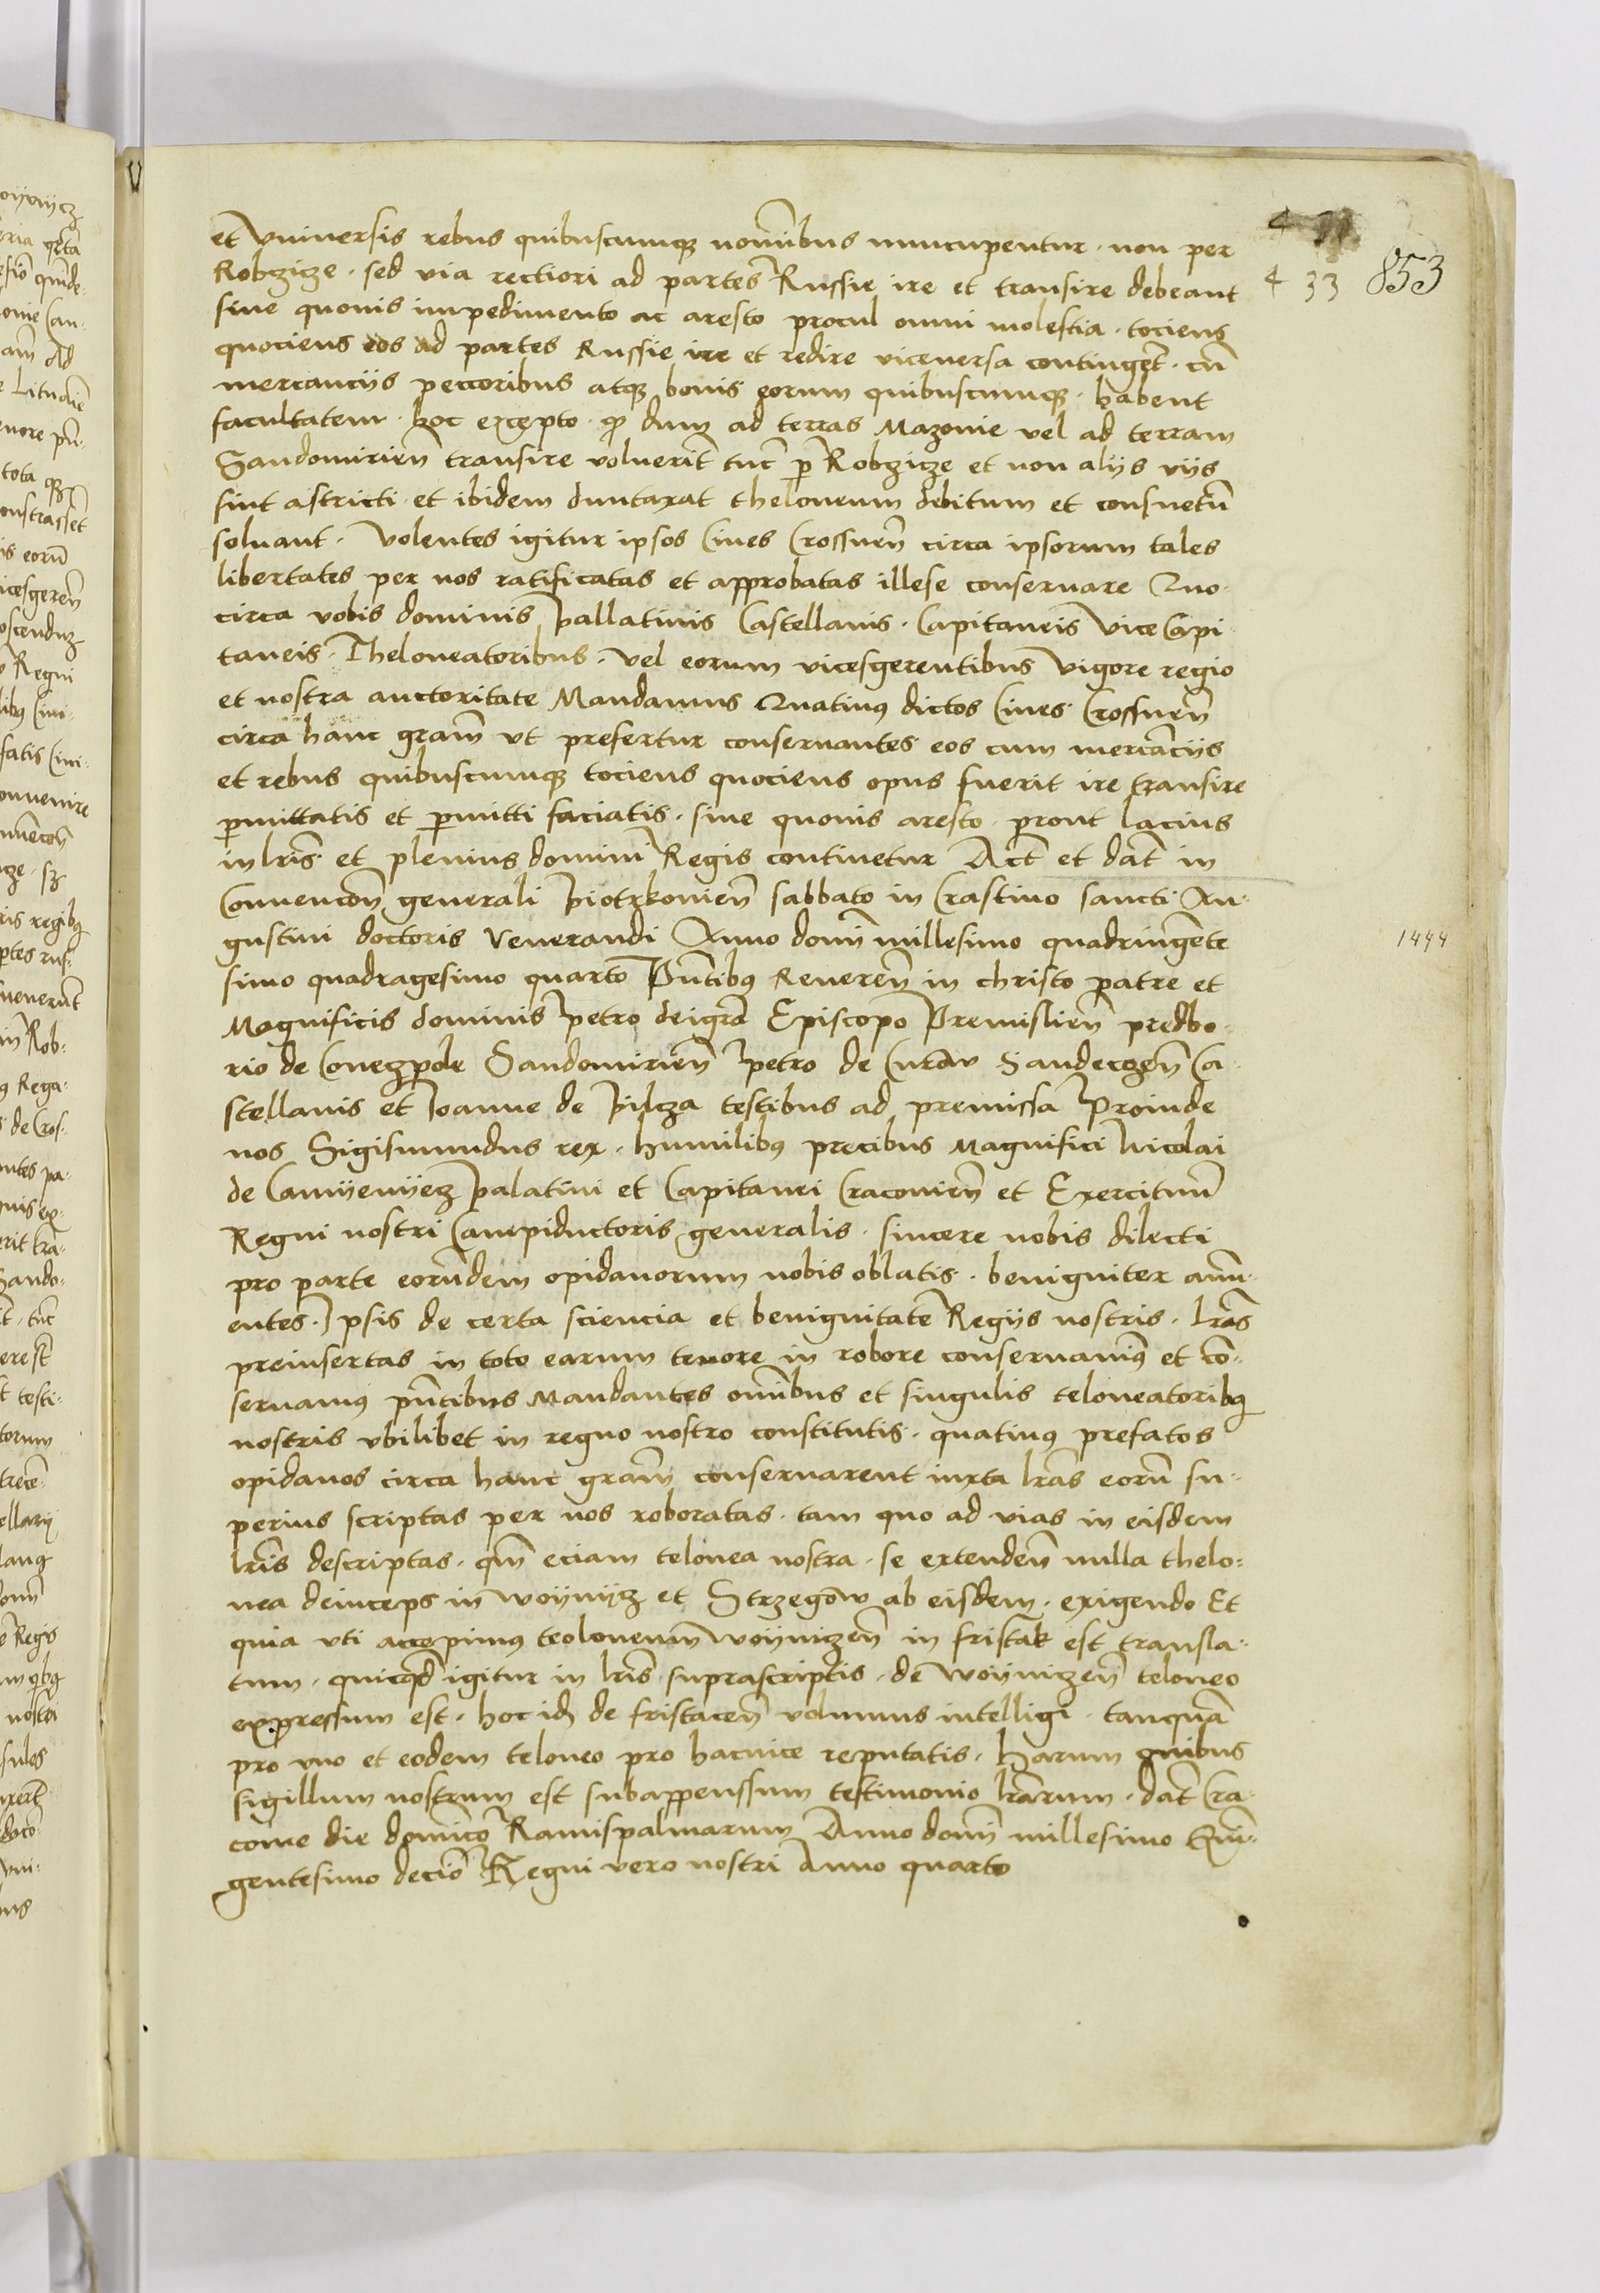 et Vniuersis rebus quibuscumq3 nominibus nuncupentur · non per
Robczicze · sed via rectiori ad partes Russie ire et transire debeant
433 853
sine quouis impedimento ac aresto procul omni molestia · tociens
quociens eos ad partes Russie ire et redire viceuersa contingent · cū
mercanciis peccoribus atq3 bonis eorum quibuscumq3 · habent
facultatem · hoc excepto · q dum ad terras Mazouie vel ad terram
Sandomirien̄ transire voluerint tūc p Robczicze et non alijs vijs
sint astricti · et ibidem duntaxat theloneum debitum et consuetū
soluant · Volentes igitur ipsos Ciues Crossnen̄ circa ipsorum tales
libertates per nos ratificatas et approbatas illese conseruare Quo·
circa vobis dominis Pallatinis Castellanis · Capitaneis ViceCapi·
taneis · Theloneatoribus · vel eorum vicesgerentibus Vigore regio
et nostra auctoritate Mandamus Quatinus dictos Ciues Crossnen̄
circa hanc gram̄ vt prefertur conseruantes eos cum mercāciis
et rebus quibuscumq3 tociens quociens opus fuerit ire transire
pmittatis et pmitti faciatis · sine quouis aresto · prout lacius
in lris̄ et plenius domini Regis continetur Act̄ et dat̄ in
Conuencōn generali Piotrkouien̄ sabbato in Crastino sancti Au·
gustini doctoris Venerandi Anno domī millesimo quadringente
1444
simo quadragesimo quarto Pn̄tibus Reueren̄ in christo patre et
Magnificis dominis Petro dei grā Episcopo Premislien̄ predbo·
rio de Conegpole Sandomirien̄ Petro de Curow Sandeczen̄ Ca·
stellanis et Ioanne de Pilcza testibus ad premissa Proinde
nos Sigismundus rex · humilibus precibus Magnifici Nicolai
de Camyenyecz Palatini et Capitanei Cracouien̄ et Exercituum
Regni nostri Campiductoris generalis · sincere nobis dilecti
pro parte eorūdem opidanorum nobis oblatis · benigniter annu·
entes · Ipsis de certa sciencia et benignitate Regijs nostris · lrās
preinsertas in toto earum tenore in robore conseruauimus et cō·
seruamus pn̄tibus Mandantes omībus et singulis teloneatoribus
nostris vbilibet in regno nostro constitutis · quatinus prefatos
opidanos circa hanc gram̄ conseruarent iuxta lrās eorū su·
perius scriptas per nos roboratas · tam quo ad vias in eisdem
lris̄ descriptas · qm̄ eciam telonea nostra · se extenden̄ nulla thelo·
nea deinceps in Woynycz et Strzegow ab eisdem · exigendo Et
quia vti accepimus teoloneum Woyniczen̄ in fristak est transla·
tum · quicqd igitur in lris̄ suprascriptis · de Woyniczen̄ teloneo
expressum est · hoc id de fristacen̄ volumus intelligi · tanquā
pro vno et eodem teloneo pro hacvice reputatis · Harum quibus
sigillum nostrum est subappenssum testimonio lrārum · dat̄ Cra·
couie die dominico Ramispalmarum Anno domī millesimo Quin·
gentesimo decīo Regni vero nostri Anno quarto